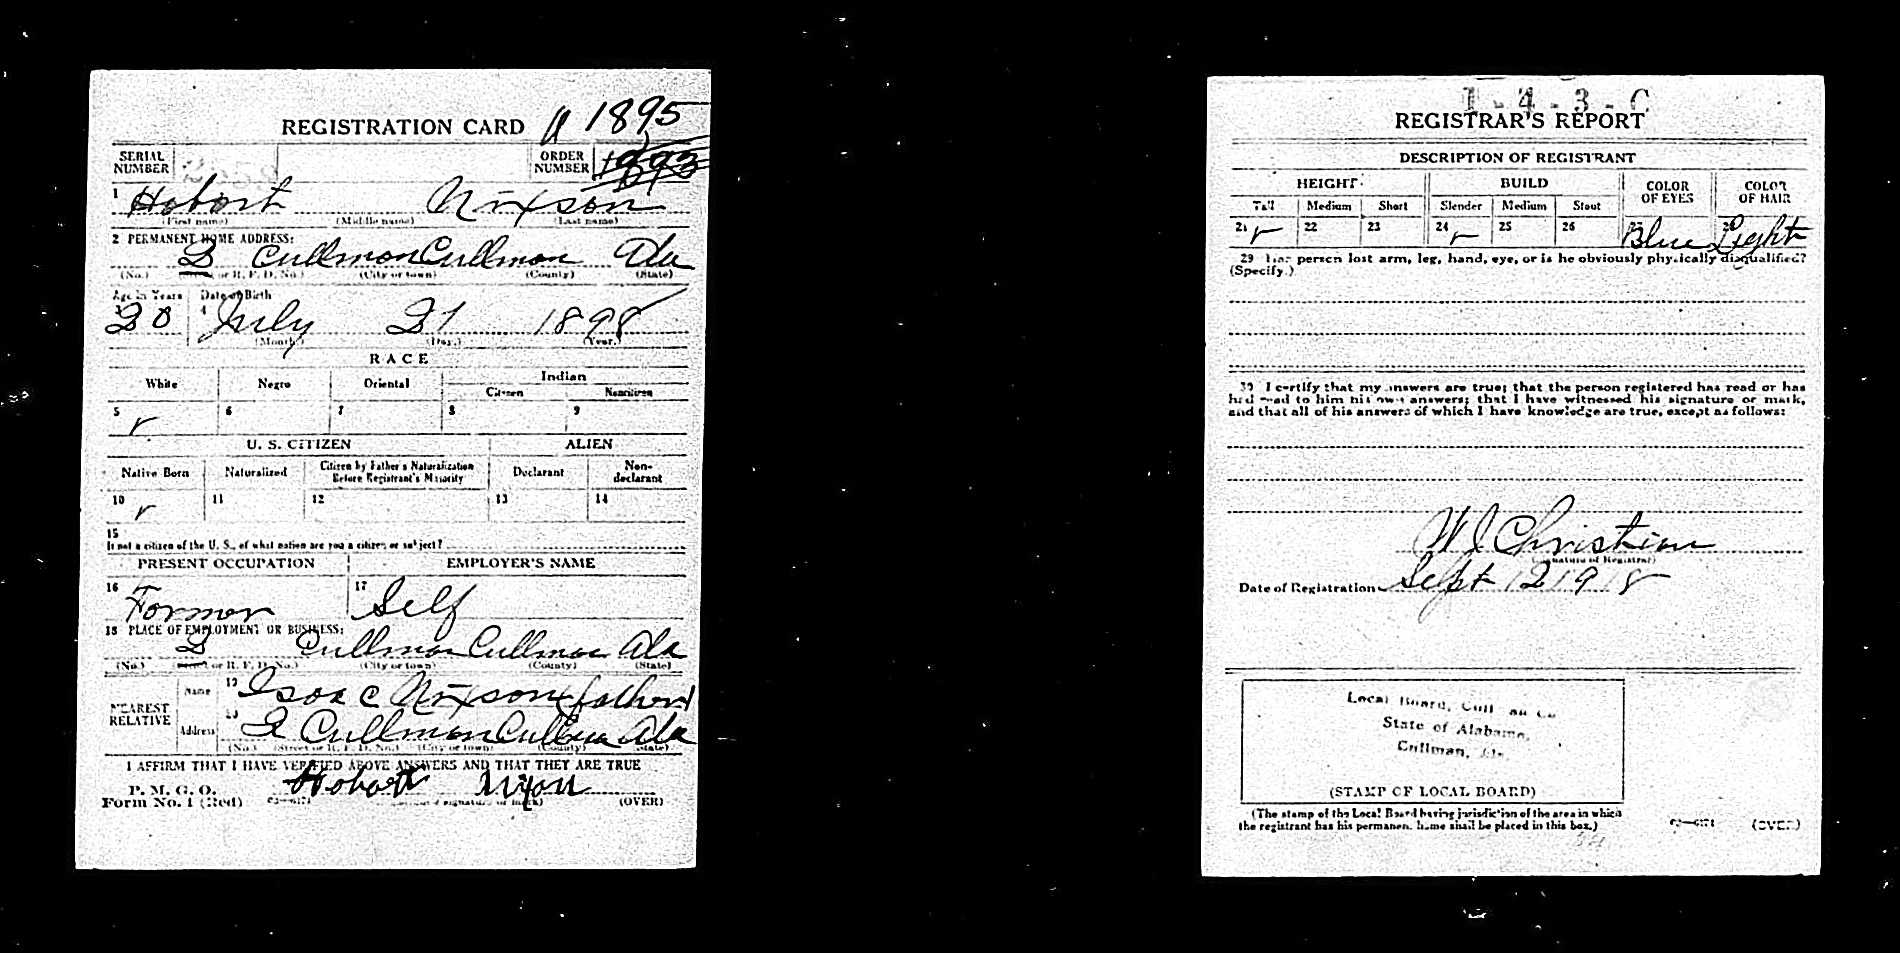 REGISTRATION CARD A 1895
SERIAL NUMBER ORDER NUMBER 1893
1 Hobart Nixson
(First name) (Middle name) (Last name)
2 PERMANENT HOME ADDRESS:
2 Cullman Cullman Ala
(No.) (Street or R. F. D. No.) (City or town) (County) (State)
Age in Years Date of Birth
3 20 4 July 21 1898
(Month.) (Day.) (Year.)
RACE
White Negro Oriental Indian
Citizen Noncitizen
5 6 7 8 9
U. S. CITIZEN ALIEN
Native Born Naturalized Citizen by Father's Naturalization Before Registrant's Majority Declarant Non-declarant
10 11 12 13 14
15
If not a citizen of the U. S., of what nation are you a citizen or subject?
PRESENT OCCUPATION EMPLOYER'S NAME
16 Former 17 Self
18 PLACE OF EMPLOYMENT OR BUSINESS:
2 Cullman Cullman Ala
(No.) (Street or R. F. D. No.) (City or town) (County) (State)
NEAREST RELATIVE
Name 19 Isaac Nixson father
Address 20 2 Cullman Cullman Ala
(No.) (Street or R. F. D. No.) (City or town) (County) (State)
I AFFIRM THAT I HAVE VERIFIED ABOVE ANSWERS AND THAT THEY ARE TRUE
P. M. G. O.
Form No. 1 (Red) Hobart Nixon
(Registrant's signature or mark) (OVER)
1-4-3-C
REGISTRAR'S REPORT
DESCRIPTION OF REGISTRANT
HEIGHT BUILD COLOR OF EYES COLOR OF HAIR
Tall Medium Short Slender Medium Stout
21 22 23 24 25 26 27 Blue 28 Light
29 Has person lost arm, leg, hand, eye, or is he obviously physically disqualified?
(Specify.)
30 I certify that my answers are true; that the person registered has read or has
had read to him his own answers; that I have witnessed his signature or mark,
and that all of his answers of which I have knowledge are true, except as follows:
W J Christian
(Signature of Registrar)
Date of Registration Sept 12 1918
Local Board, Cullman Co
State of Alabama,
Cullman, Ala.
(STAMP OF LOCAL BOARD)
(The stamp of the Local Board having jurisdiction of the area in which
the registrant has his permanent home shall be placed in this box.)
(OVER)